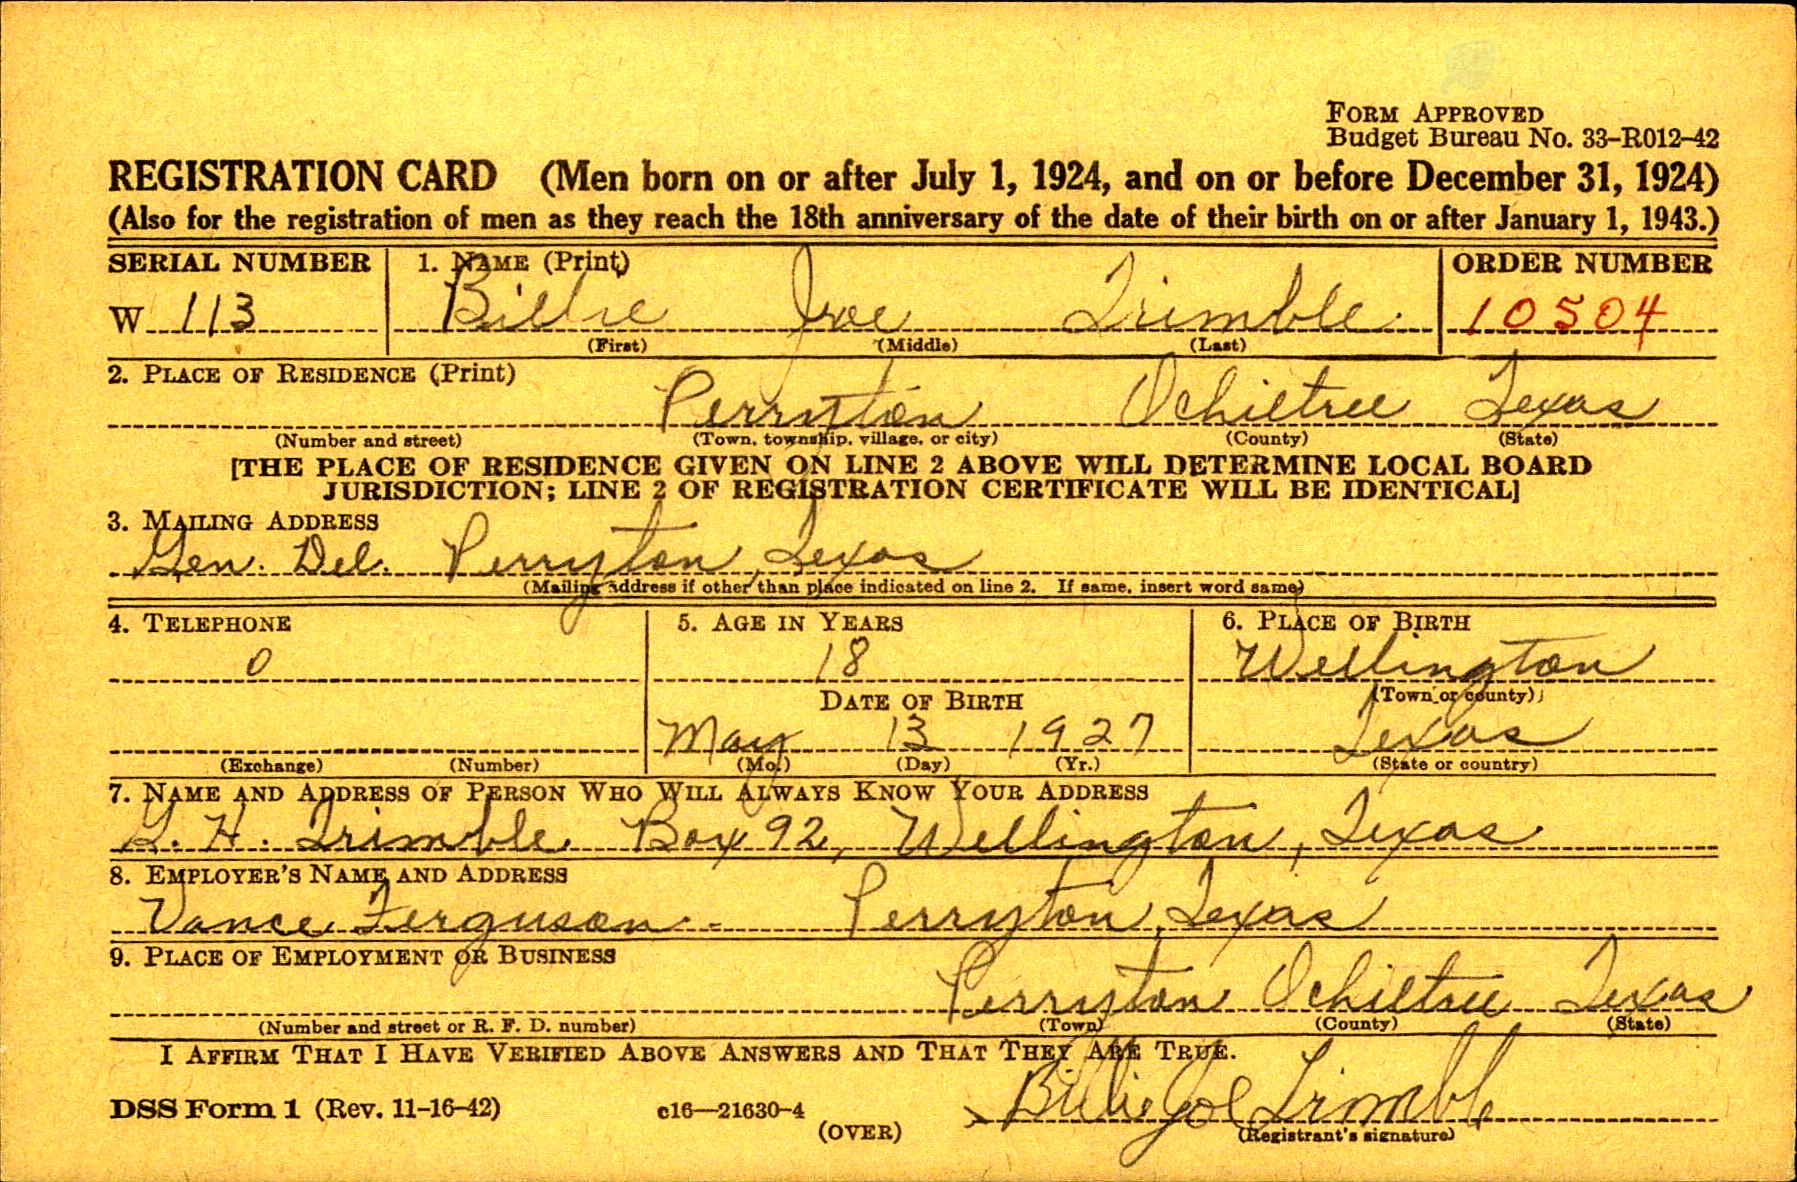 FORM APPROVED
Budget Bureau No. 33-R012-42
REGISTRATION CARD (Men born on or after July 1, 1924, and on or before December 31, 1924)
(Also for the registration of men as they reach the 18th anniversary of the date of their birth on or after January 1, 1943.)
SERIAL NUMBER 1. NAME (Print) ORDER NUMBER
W 113 Billie Joe Trimble 10504
(First) (Middle) (Last)
2. PLACE OF RESIDENCE (Print)
Perryton Ochiltree Texas
(Number and street) (Town, township, village, or city) (County) (State)
[THE PLACE OF RESIDENCE GIVEN ON LINE 2 ABOVE WILL DETERMINE LOCAL BOARD
JURISDICTION; LINE 2 OF REGISTRATION CERTIFICATE WILL BE IDENTICAL]
3. MAILING ADDRESS
Gen. Del. Perryton, Texas
(Mailing address if other than place indicated on line 2. If same, insert word same)
4. TELEPHONE 5. AGE IN YEARS 6. PLACE OF BIRTH
0 18 Wellington
DATE OF BIRTH (Town or county)
May 13 1927 Texas
(Exchange) (Number) (Mo.) (Day) (Yr.) (State or country)
7. NAME AND ADDRESS OF PERSON WHO WILL ALWAYS KNOW YOUR ADDRESS
G. H. Trimble Box 92, Wellington, Texas
8. EMPLOYER'S NAME AND ADDRESS
Vance Ferguson - Perryton, Texas
9. PLACE OF EMPLOYMENT OR BUSINESS
Perryton Ochiltree Texas
(Number and street or R. F. D. number) (Town) (County) (State)
I AFFIRM THAT I HAVE VERIFIED ABOVE ANSWERS AND THAT THEY ARE TRUE.
DSS Form 1 (Rev. 11-16-42) c16—21630-4 x Billie Joe Trimble
(OVER) (Registrant's signature)